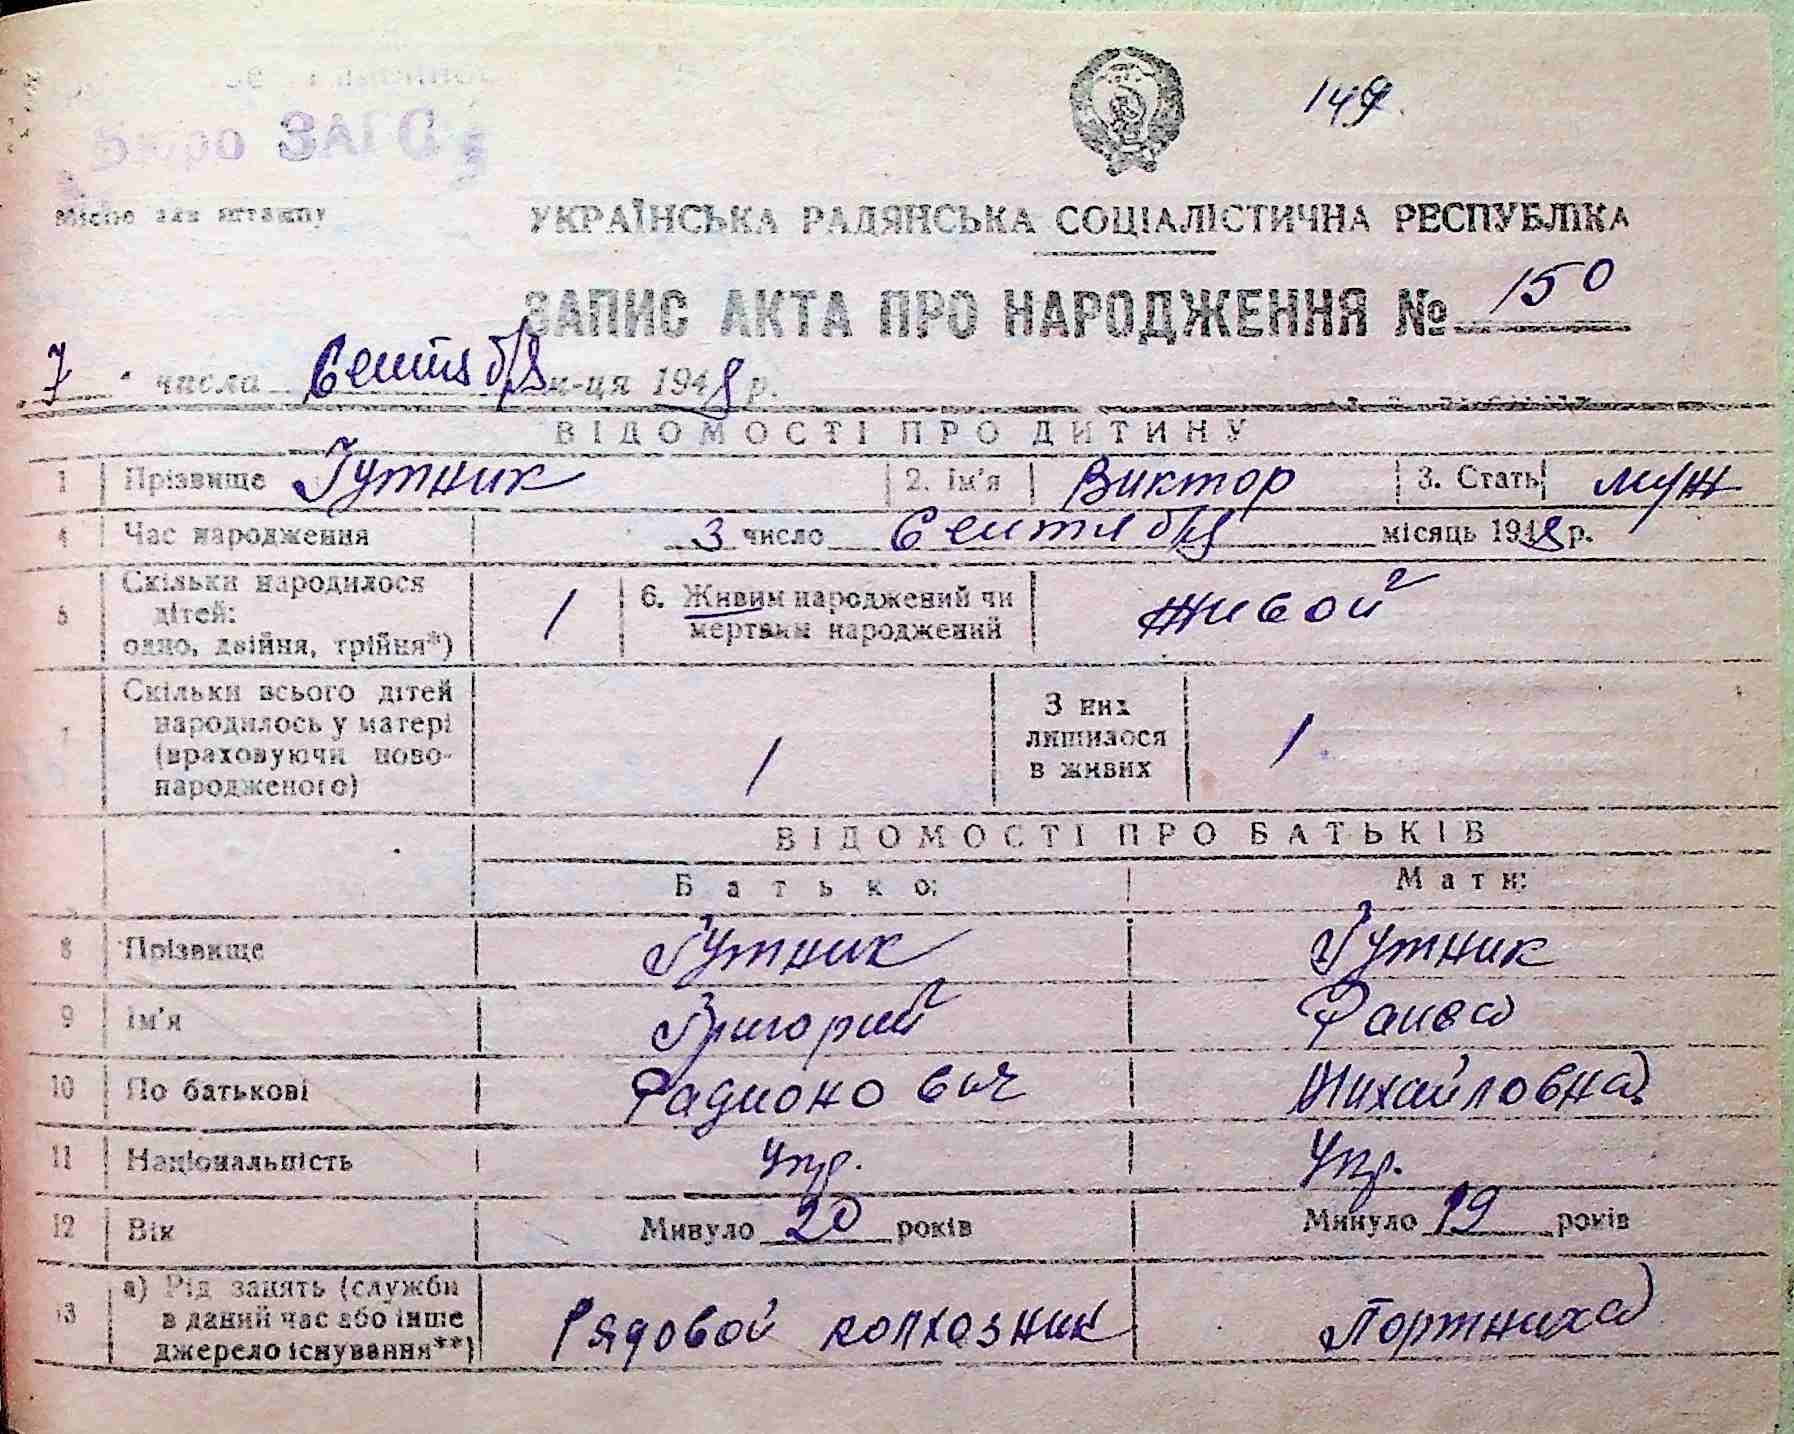 149.
Бюро ЗАГС
Місце для штампу
УКРАЇНСЬКА РАДЯНСЬКА СОЦІАЛІСТИЧНА РЕСПУБЛІКА
ЗАПИС АКТА ПРО НАРОДЖЕННЯ № 150
7 числа Сентября м-ця 1948 р.
ВІДОМОСТІ ПРО ДИТИНУ
1 Прізвище Гутник 2. Ім'я Виктор 3. Стать муж
4 Час народження 3 число Сентября місяць 1948 р.
5 Скільки народилося
дітей:
одно, двійня, трійня*) 1 6. Живим народжений чи
мертвим народжений живой
7 Скільки всього дітей
народилось у матері
(враховуючи ново-
народженого) 1 З них
лишилося
в живих 1
ВІДОМОСТІ ПРО БАТЬКІВ
Батько: Мати:
8 Прізвище Гутник Гутник
9 Ім'я Григорий
10 По батькові Радионович Михайловна
11 Національність Укр. Укр.
12 Вік Минуло 20 років Минуло 19 років
13 а) Рід занять (служби
в даний час або інше
джерело існування**) Рядовой колхозник Портниха